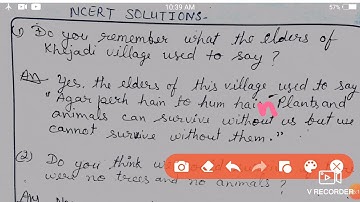 10:39 AM
57%
NCERT SOLUTIONS-
(1) Do you remember what the elders of
Khejadi village used to say?
An Yes, the elders of this village used to say
"Agar perh hain to hum hain Plants and
animals can survive without us but we
cannot survive without them."
(2) Do you think
were no trees and no animals?
Ans
V RECORDER